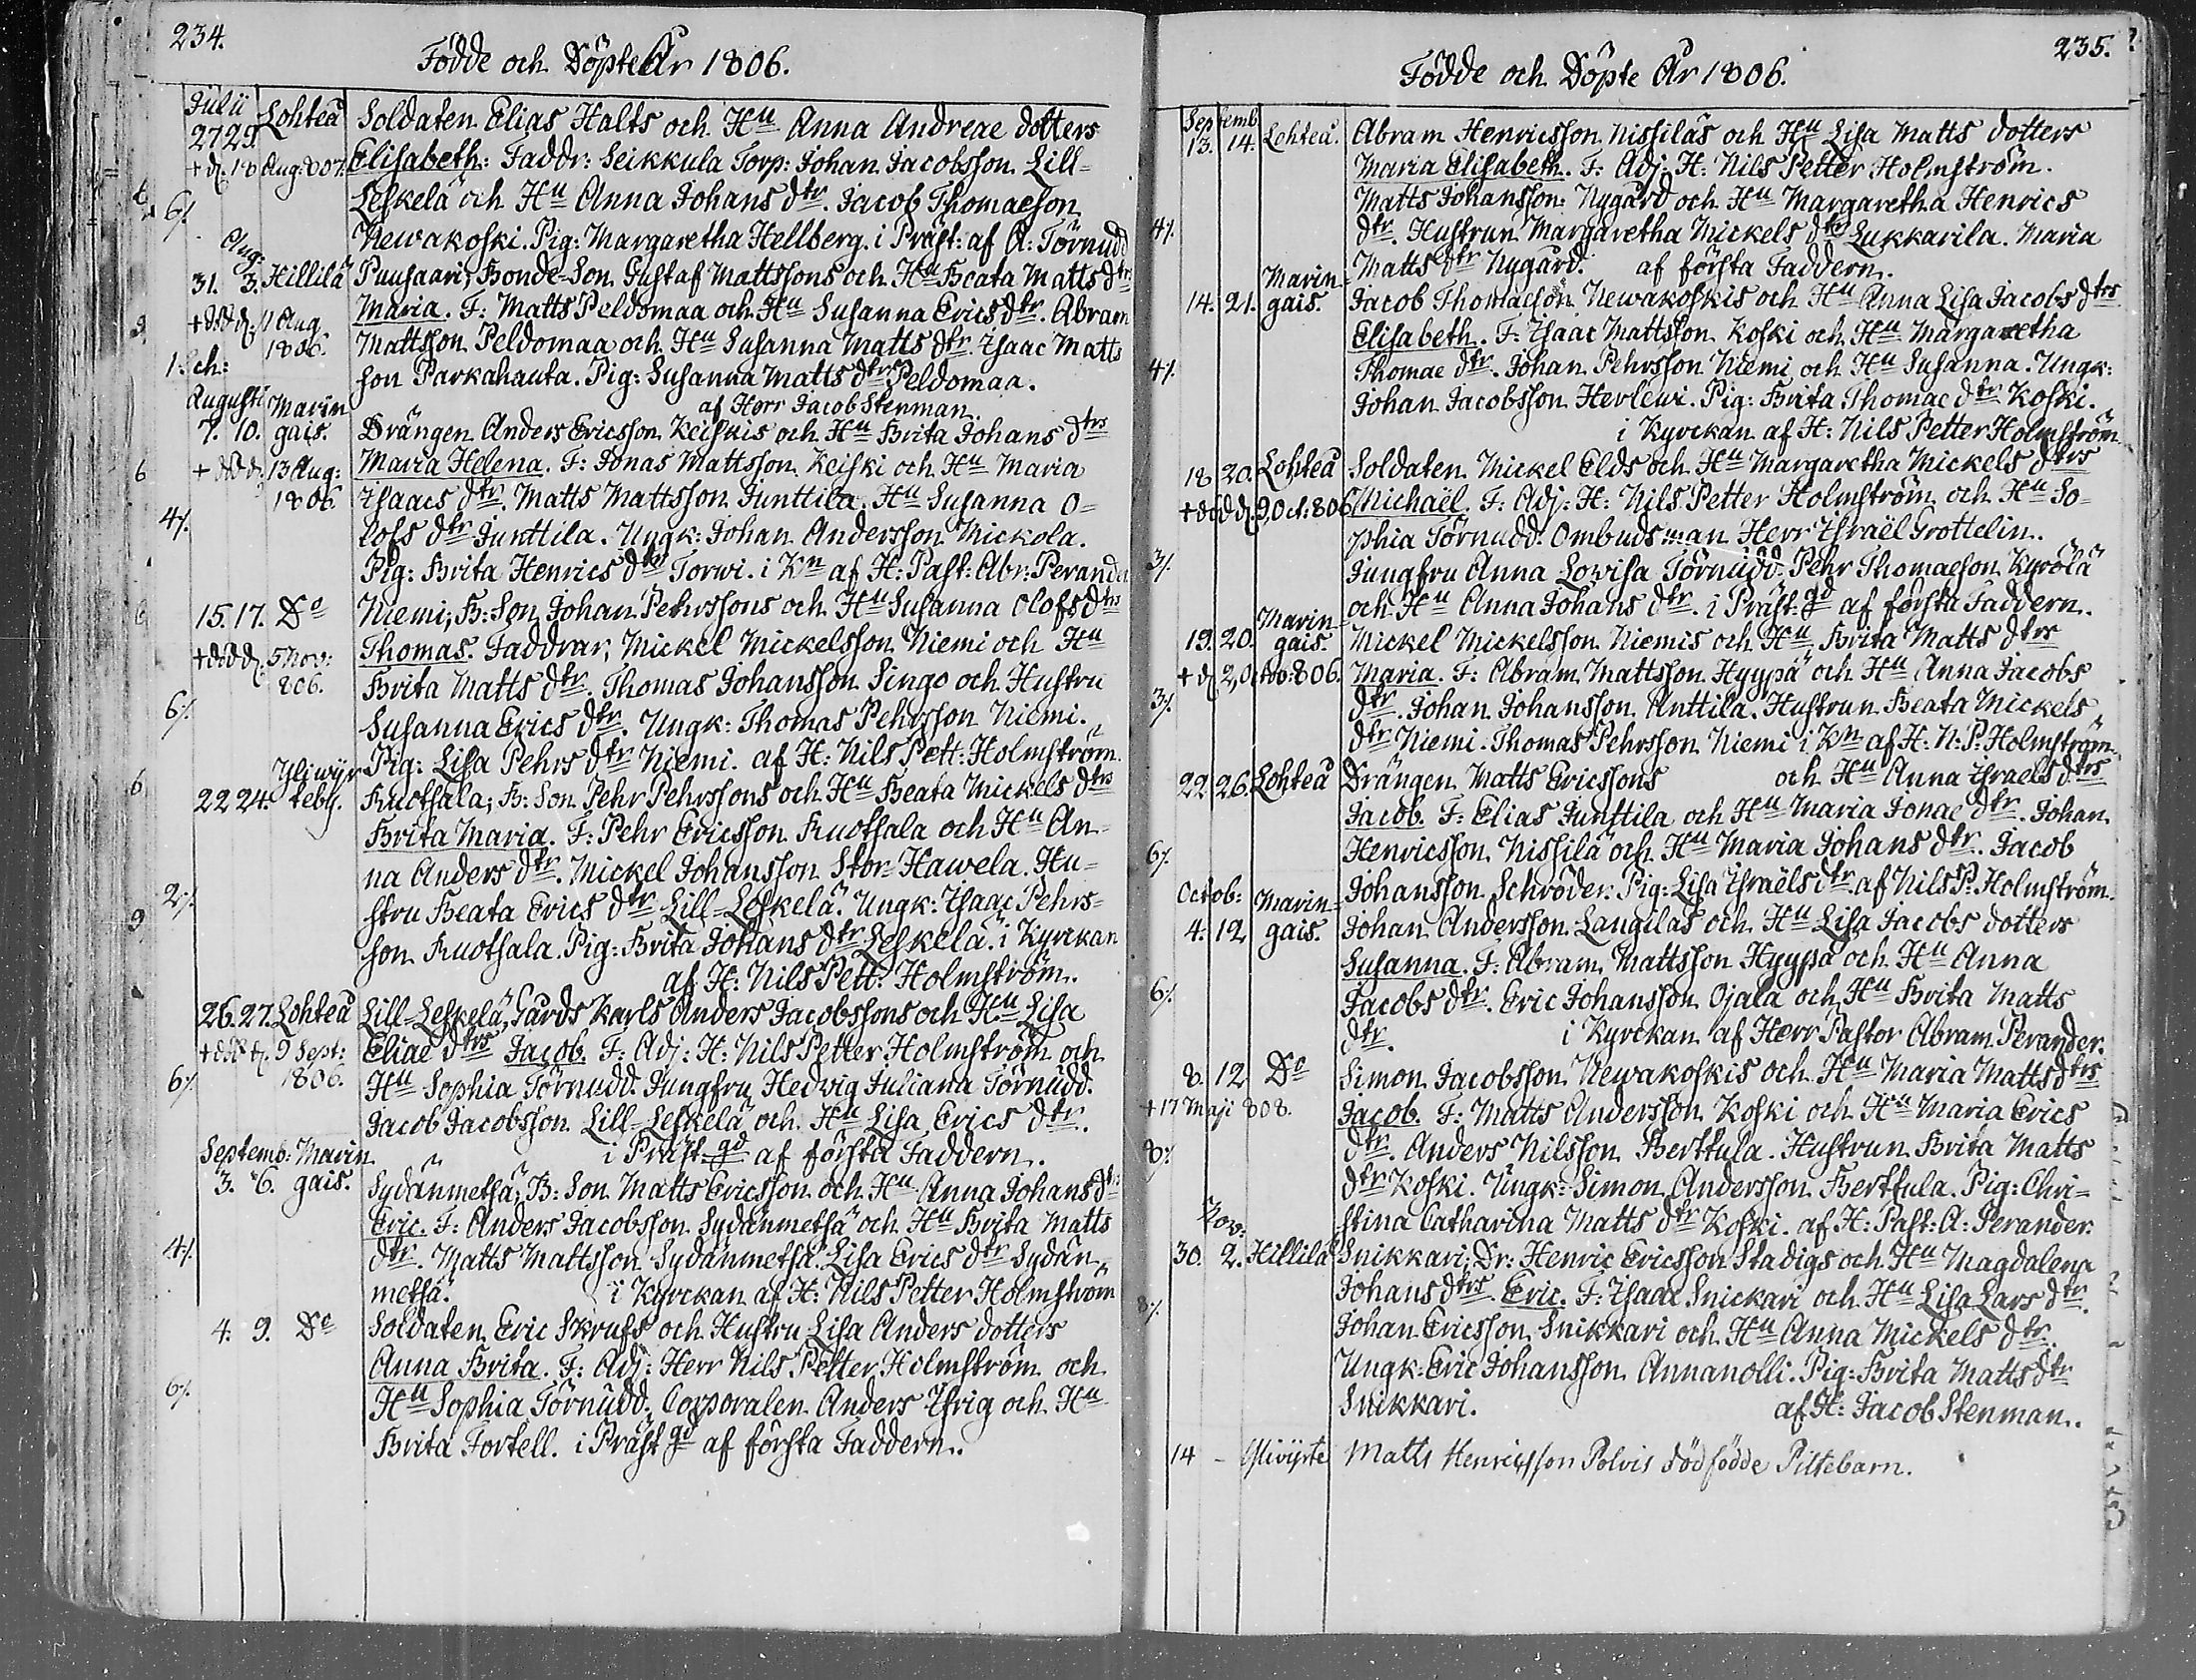 234.
Födde och Döpte År 1806.
Julii
27 29. Lohteå Soldaten Elias Halts och Hu Anna Andreae dotters
+ d. 18 Aug: 807. Elisabeth: Faddr: Seikkula Torp: Johan Jacobsson Lill=
6/. Leskelä och Hu Anna Johans dtr. Jacob Thomaeson
Newakoski. Pig: Margaretha Hellberg. i Präst: af A: Törnudd
Aug:
31. 3. Hillilä Puusaari, Bonde-Son Gustaf Mattssons och Hu Beata Matts dtr
Maria. F: Matts Peldomaa och Hu Susanna Erics dtr. Abram
+ död d. 11 Aug
1806. Mattsson Peldomaa och Hu Susanna Matts dtr. Isaac Matts
1: Sch: son Parkahauta. Pig: Susanna Matts dtr Peldomaa.
af Herr Jacob Stenman.
Augusti Marin
7. 10. gais. Drängen Anders Ericsson Keiskis och Hu Brita Johans dtrs
+ död d. 13 Aug: Maria Helena. F: Jonas Mattsson Keiski och Hu Maria
1806. Isaacs dtr. Matts Mattsson Junttila. Hu Susanna O=
4/. lofs dtr Junttila. Ungk: Johan Andersson Mickola.
Pig: Brita Henrics dtr Torwi. i Kn af H: Past: Abr: Perander
15. 17. Do Niemi, B: Son Johan Pehrssons och Hu Susanna Olofs dtrs
+ död d. 5 Nov: Thomas. Faddrar, Mickel Mickelsson Niemi och Hu
806. Brita Matts dtr. Thomas Johansson Singo och Hustru
6/. Susanna Erics dtr. Ungk: Thomas Pehrsson Niemi.
Pig: Lisa Pehrs dtr Niemi. af H: Nils Pett: Holmström.
Yliwijr
22 24. keby. Ruothala, B: Son Pehr Pehrssons och Hu Beata Mickels dtrs
Brita Maria. F: Pehr Ericsson Ruothala och Hu An=
na Anders dtr. Mickel Johansson Stor-Hawela. Hu=
2/. stru Beata Erics dtr Lill-Leskelä. Ungk: Isaac Pehrs=
son Ruothala. Pig: Brita Johans dtr Leskelä. i Kyrckan
af H: Nils Pett: Holmström.
26. 27. Lohteå Lill-Leskelä, Gårds Karls Anders Jacobssons och Hu Lisa
+ död d. 9 Sept: Eliae dtrs Jacob. F: Adj: H: Nils Petter Holmström och
6/. 1806. Hu Sophia Törnudd. Jungfru Hedvig Juliana Törnudd.
Jacob Jacobsson Lill-Leskelä och Hu Lisa Erics dtr.
i Präst gd af första Faddern.
Septemb: Marin
3. 6. gais. Sydänmetsä, B: Son Matts Ericsson och Hu Anna Johans dtr
Eric. F: Anders Jacobsson Sydänmetsä och Hu Brita Matts
4/. dtr. Matts Mattsson Sydänmetsä. Lisa Erics dtr Sydän=
metsä. i Kyrckan af H: Nils Petter Holmström
4. 9. Do Soldaten Eric Skrufs och Hustru Lisa Anders dotters
Anna Brita. F: Adj: Herr Nils Petter Holmström och
6/. Hu Sophia Törnudd. Corporalen Anders Ifrig och Hu
Brita Fortell. i Präst gd af första Faddern.
235.
Födde och Döpte År 1806.
Septemb
13. 14. Lohteå. Abram Henricsson Nissiläs och Hu Lisa Matts dotters
Maria Elisabeth. F: Adj: H: Nils Petter Holmström.
Matts Johansson Nygård och Hu Margaretha Henrics
4/. dtr. Hustrun Margaretha Mickels dtr Lukkarila. Maria
Matts dtr Nygård. af första Faddern.
Marin=
14. 21. gais. Jacob Thomaeson Newakoskis och Hu Anna Lisa Jacobs dtrs
Elisabeth. F: Isaac Mattsson Koski och Hu Margaretha
4/. Thomae dtr. Johan Pehrsson Niemi och Hu Susanna. Ungk:
Johan Jacobsson Herlewi. Pig: Brita Thomae dtr Koski.
i Kyrckan af H: Nils Petter Holmström
18 20. Lohteå Soldaten Mickel Elds och Hu Margaretha Mickels dtrs
+ död d. 9 Oct: 806 Michaël. F: Adj: H: Nils Petter Holmström och Hu So=
phia Törnudd. Ombudsman Herr Israël Grottelin.
3/. Jungfru Anna Lowisa Törnudd. Pehr Thomaeson Kyrölä
och Hu Anna Johans dtr. i Präst. gd af första Faddern.
Marin=
19. 20. gais. Mickel Mickelsson Niemis och Hu Brita Matts dtrs
+ d. 2, Octob: 806. Maria. F: Abram Mattsson Hyypä och Hu Anna Jacobs
3/. dtr. Johan Johansson Anttila. Hustrun Beata Mickels
dtr Niemi. Thomas Pehrsson Niemi i Kn af H: N: P: Holmström.
22. 26. Lohteå Drängen Matts Ericssons och Hu Anna Israels dtrs
Jacob. F: Elias Junttila och Hu Maria Jonae dtr. Johan
6/. Henricsson Nissilä och Hu Maria Johans dtr. Jacob
Johansson Schröder. Pig: Lisa Israëls dtr. af Nils P: Holmström.
Octob: Marin=
4. 12 gais. Johan Andersson Langilas och Hu Lisa Jacobs dotters
Susanna. F: Abram Mattsson Hyypä och Hu Anna
6/. Jacobs dtr. Eric Johansson Ojala och Hu Brita Matts
dtr. i Kyrckan af Herr Pastor Abram Perander.
8. 12 Do Simon Jacobsson Newakoskis och Hu Maria Matts dtrs
+ 17 Maji 808. Jacob. F: Matts Andersson Koski och Hu Maria Erics
8/. dtr. Anders Nilsson Berttula. Hustrun Brita Matts
dtr Koski. Ungk: Simon Andersson Berttula. Pig: Chri=
stina Catharina Matts dtr Koski. af H: Past: A: Perander.
Nov:
30. 2. Hillilä Snikkari, Dr: Henric Ericsson Stadigs och Hu Magdalena
Johans dtrs. Eric. F: Isaac Snickari och Hu Lisa Lars dtr.
8/. Johan Ericsson Snikkari och Hu Anna Mickels dtr.
Ungk: Eric Johansson Annanolli. Pig: Brita Matts dtr
Snikkari. af H: Jacob Stenman.
14 - Matts Henricsson Polvis dödfödde Piltebarn.